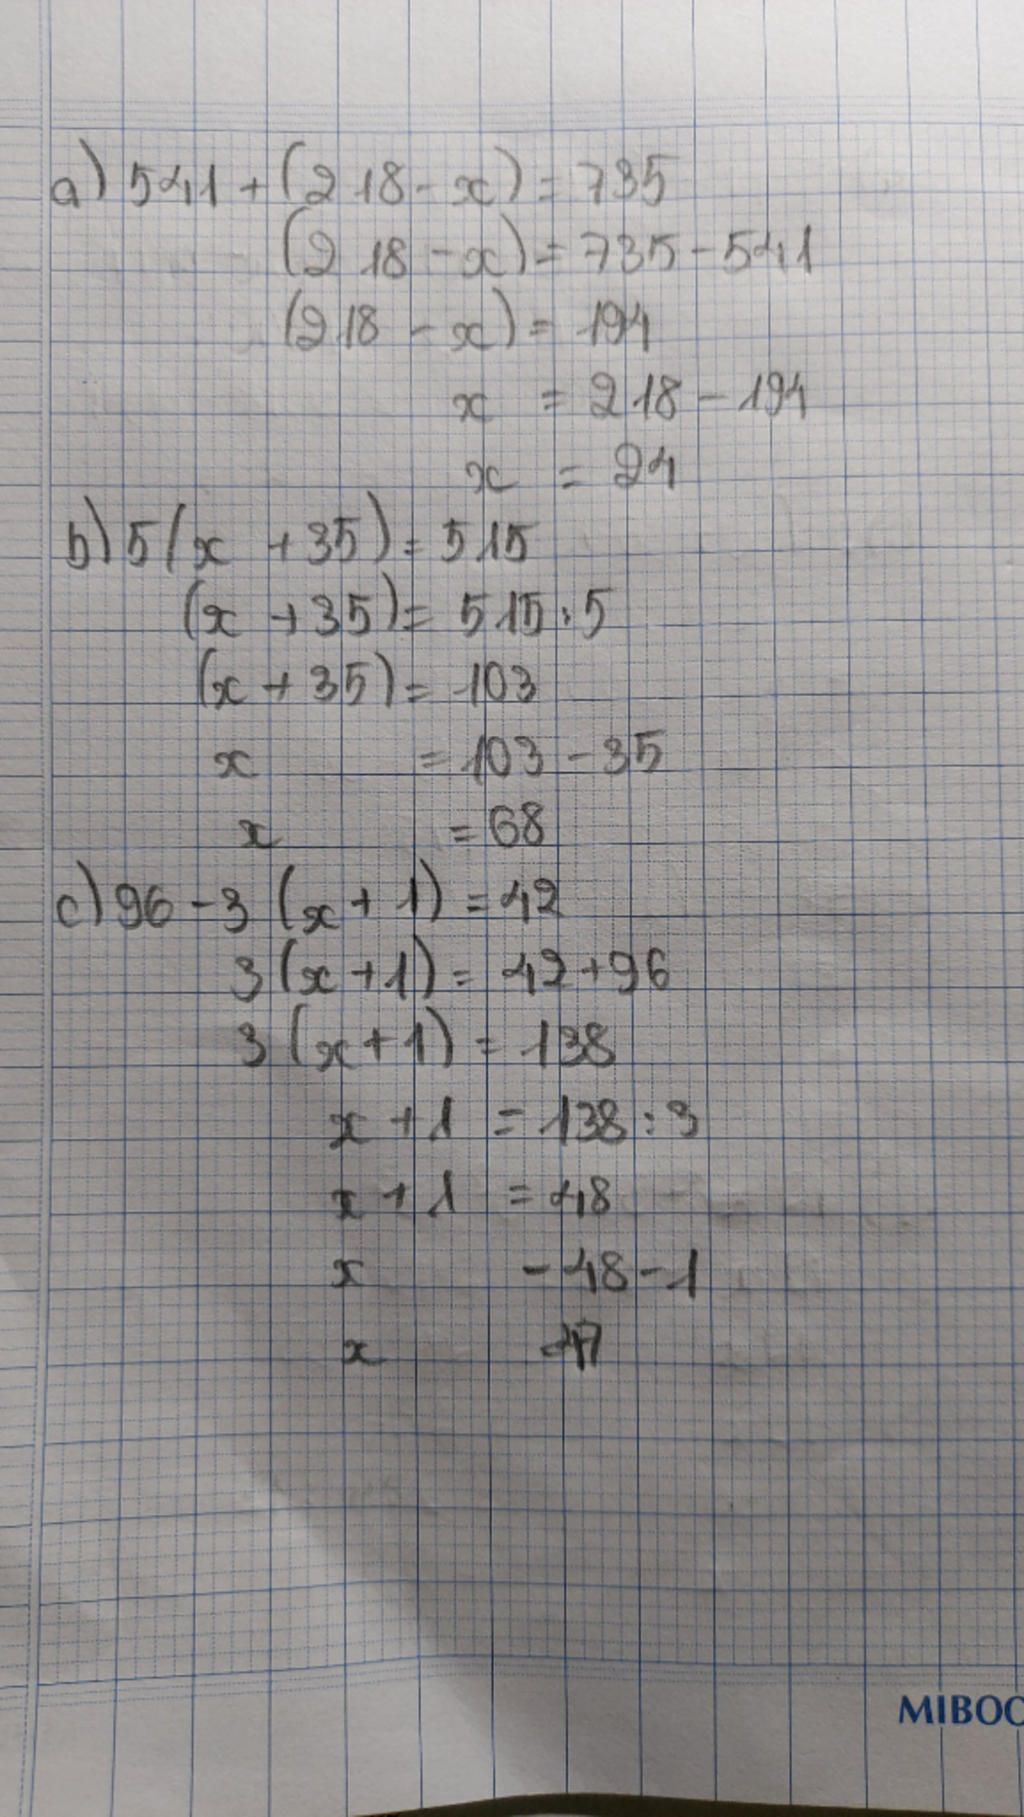 a) 541 + (218 - x) = 735
(218 - x) = 735 - 541
(218 - x) = 194
x = 218 - 194
x = 24
b) 5 (x + 35) = 515
(x + 35) = 515 : 5
(x + 35) = 103
x = 103 - 35
x = 68
c) 96 - 3 (x + 1) = 42
3 (x + 1) = 42 + 96
3 (x + 1) = 138
x + 1 = 138 : 3
x + 1 = 48
x - 48 - 1
x 47
MIBOO